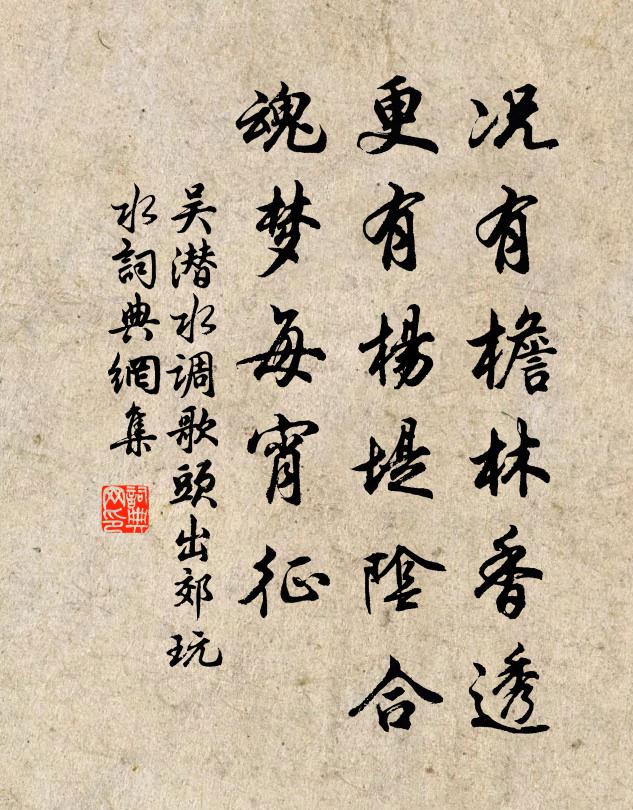 况有檐林香透
更有楊堤陰合
魂梦每宵征
吴潜水调歌頭出郊玩
水詞典網集
詞典
网印